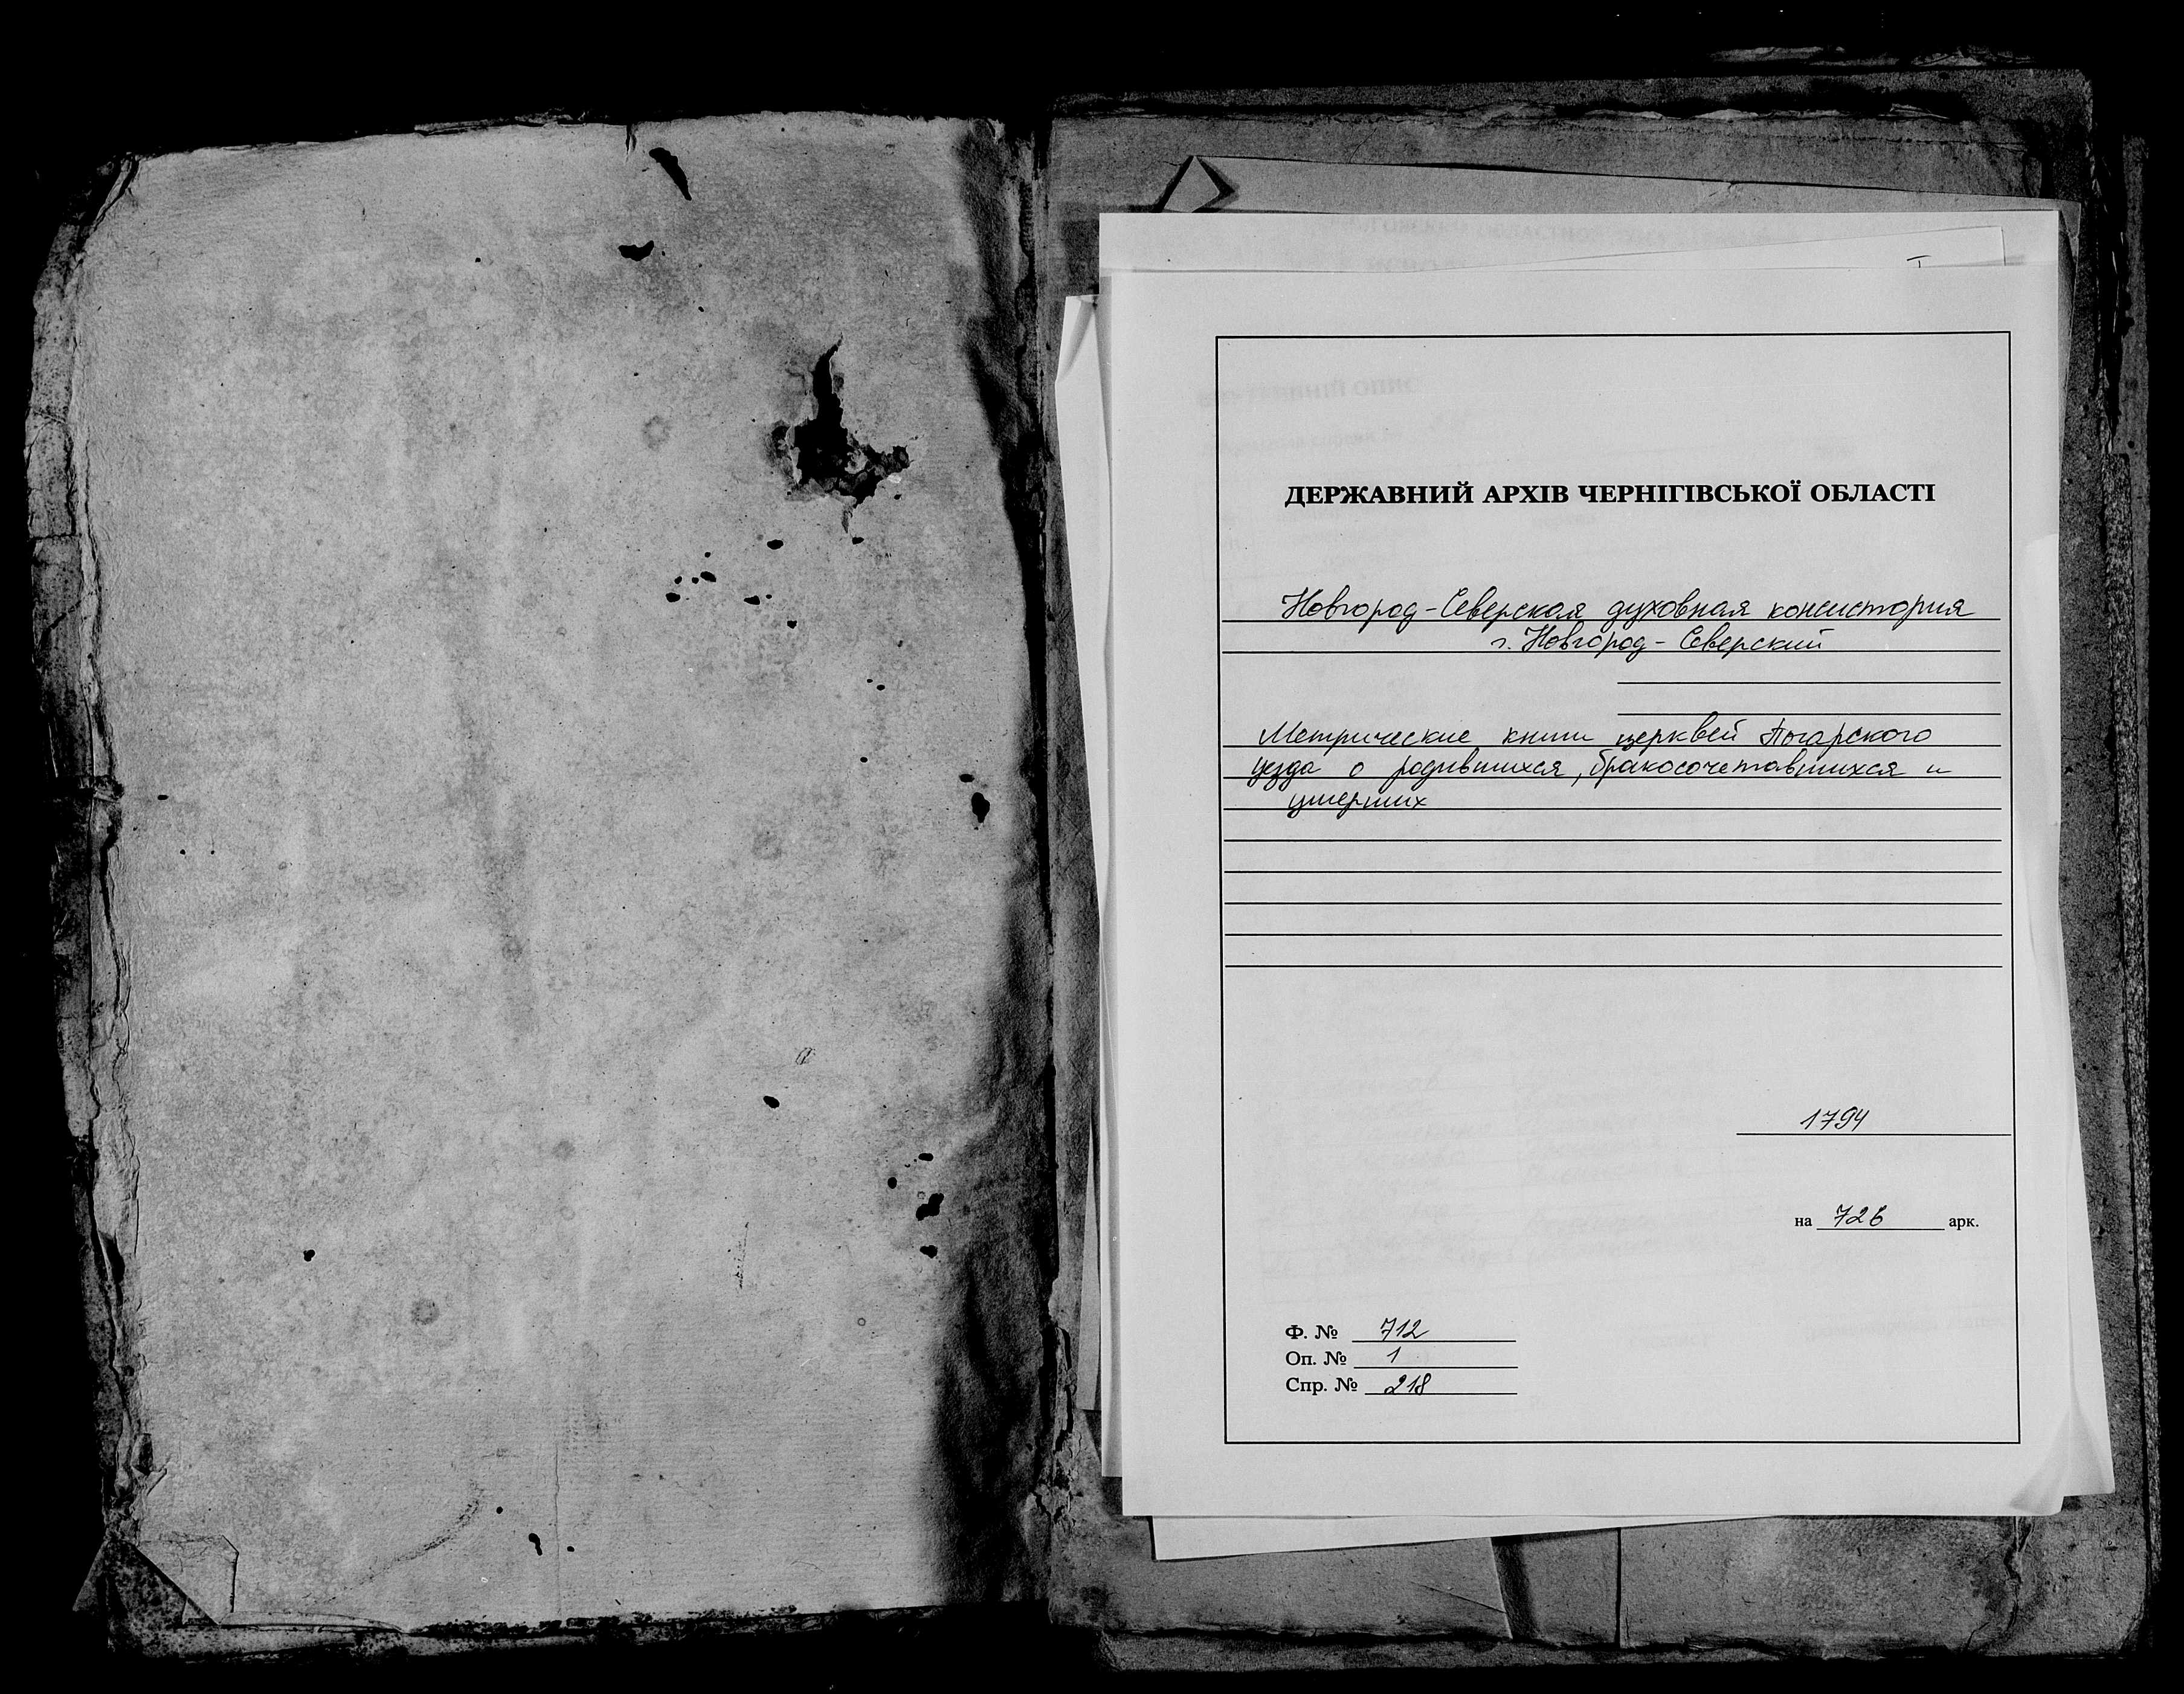 ДЕРЖАВНИЙ АРХІВ ЧЕРНІГІВСЬКОЇ ОБЛАСТІ
Новгород-Северская духовная консистория
г. Новгород-Северский
Метрические книги церквей Погарского
уезда о родившихся, бракосочетавшихся и
умерших
1794
на 726 арк.
Ф. № 712
Оп. № 1
Спр. № 218